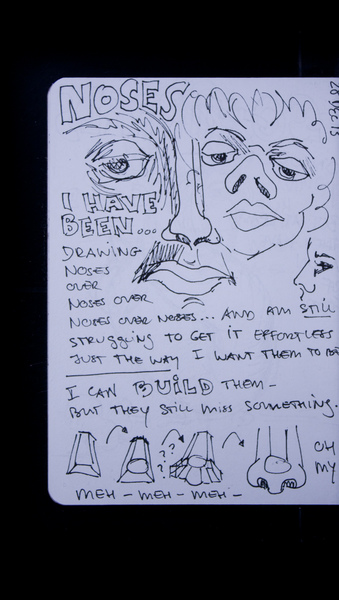 NOSES
28 DEC 13
I HAVE
BEEN...
DRAWING
NOSES
OVER
NOSES OVER
NOSES OVER NOSES... AND AM STILL
STRUGGLING TO GET IT EFFORTLESS
JUST THE WAY I WANT THEM TO
I CAN BUILD THEM -
BUT THEY STILL MISS SOMETHING.
? ? ?
OH
MY
MEH - MEH - MEH -